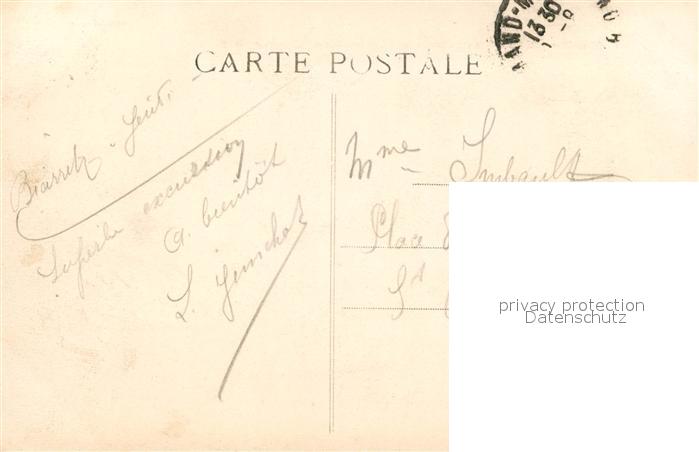 CARTE POSTALE
13 30
Biarritz
Superbe excursion
A bientôt
L.
Mme Imbault
Place
St
privacy protection
Datenschutz